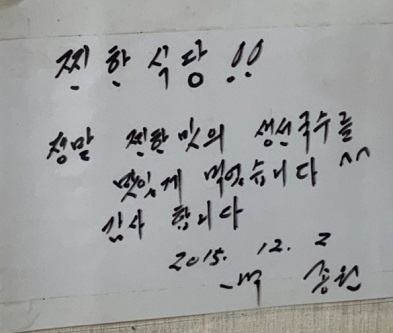 찐한식당!!
정말 찐한맛의 생선국수를
맛있게 먹었습니다 ^^
감사 합니다
2015. 12. 2
송원